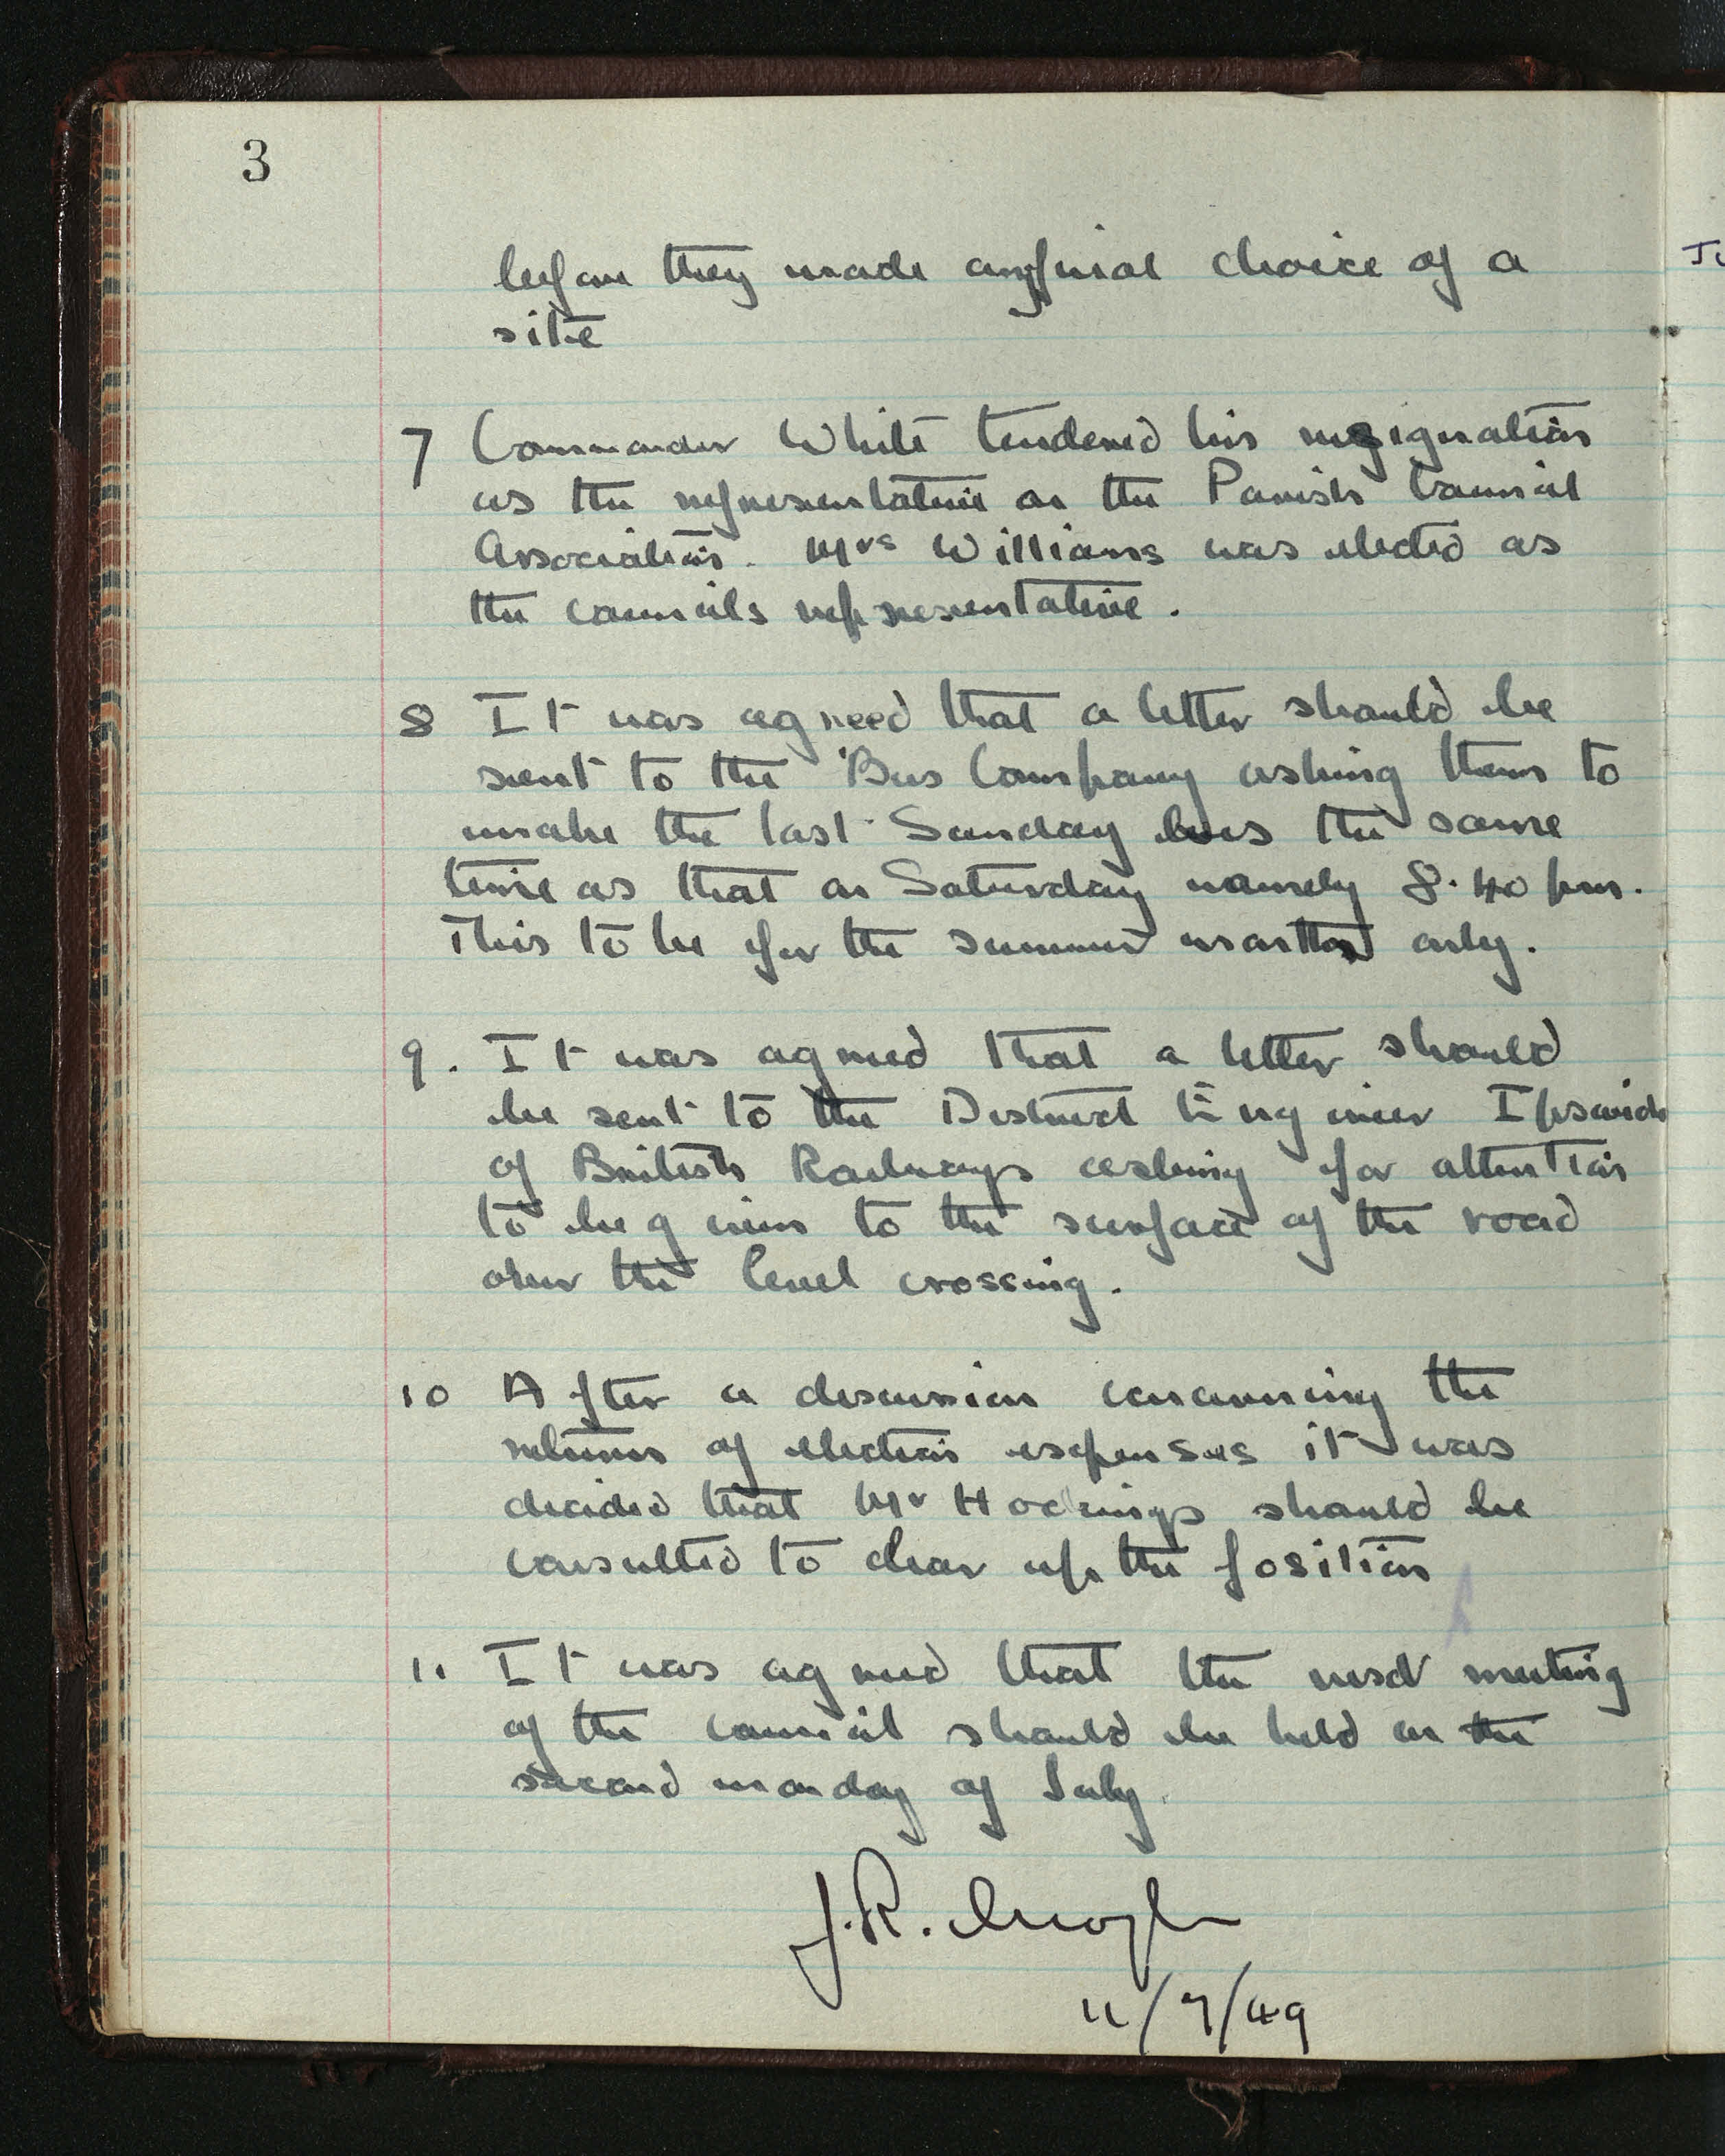 3
before they made any final choice of a
site
7 Commander White tendered his resignation
as the representative on the Parish Council
Association. Mrs Williams was elected as
the councils representative.
8 It was agreed that a letter should be
sent to the 'Bus Company asking them to
make the last Sunday bus the same
time as that on Saturday namely 8.40 pm.
This to be for the summer months only.
9. It was agreed that a letter should
be sent to the District Engineer Ipswich
of British Railways asking for attention
to be given to the surface of the road
over the level crossing.
10 After a discussion concerning the
returns of election expenses it was
decided that Mr should be
consulted to clear up the position
11 It was agreed that the next meeting
of the council should be held on the
second monday of July.
J.R.
11/7/49